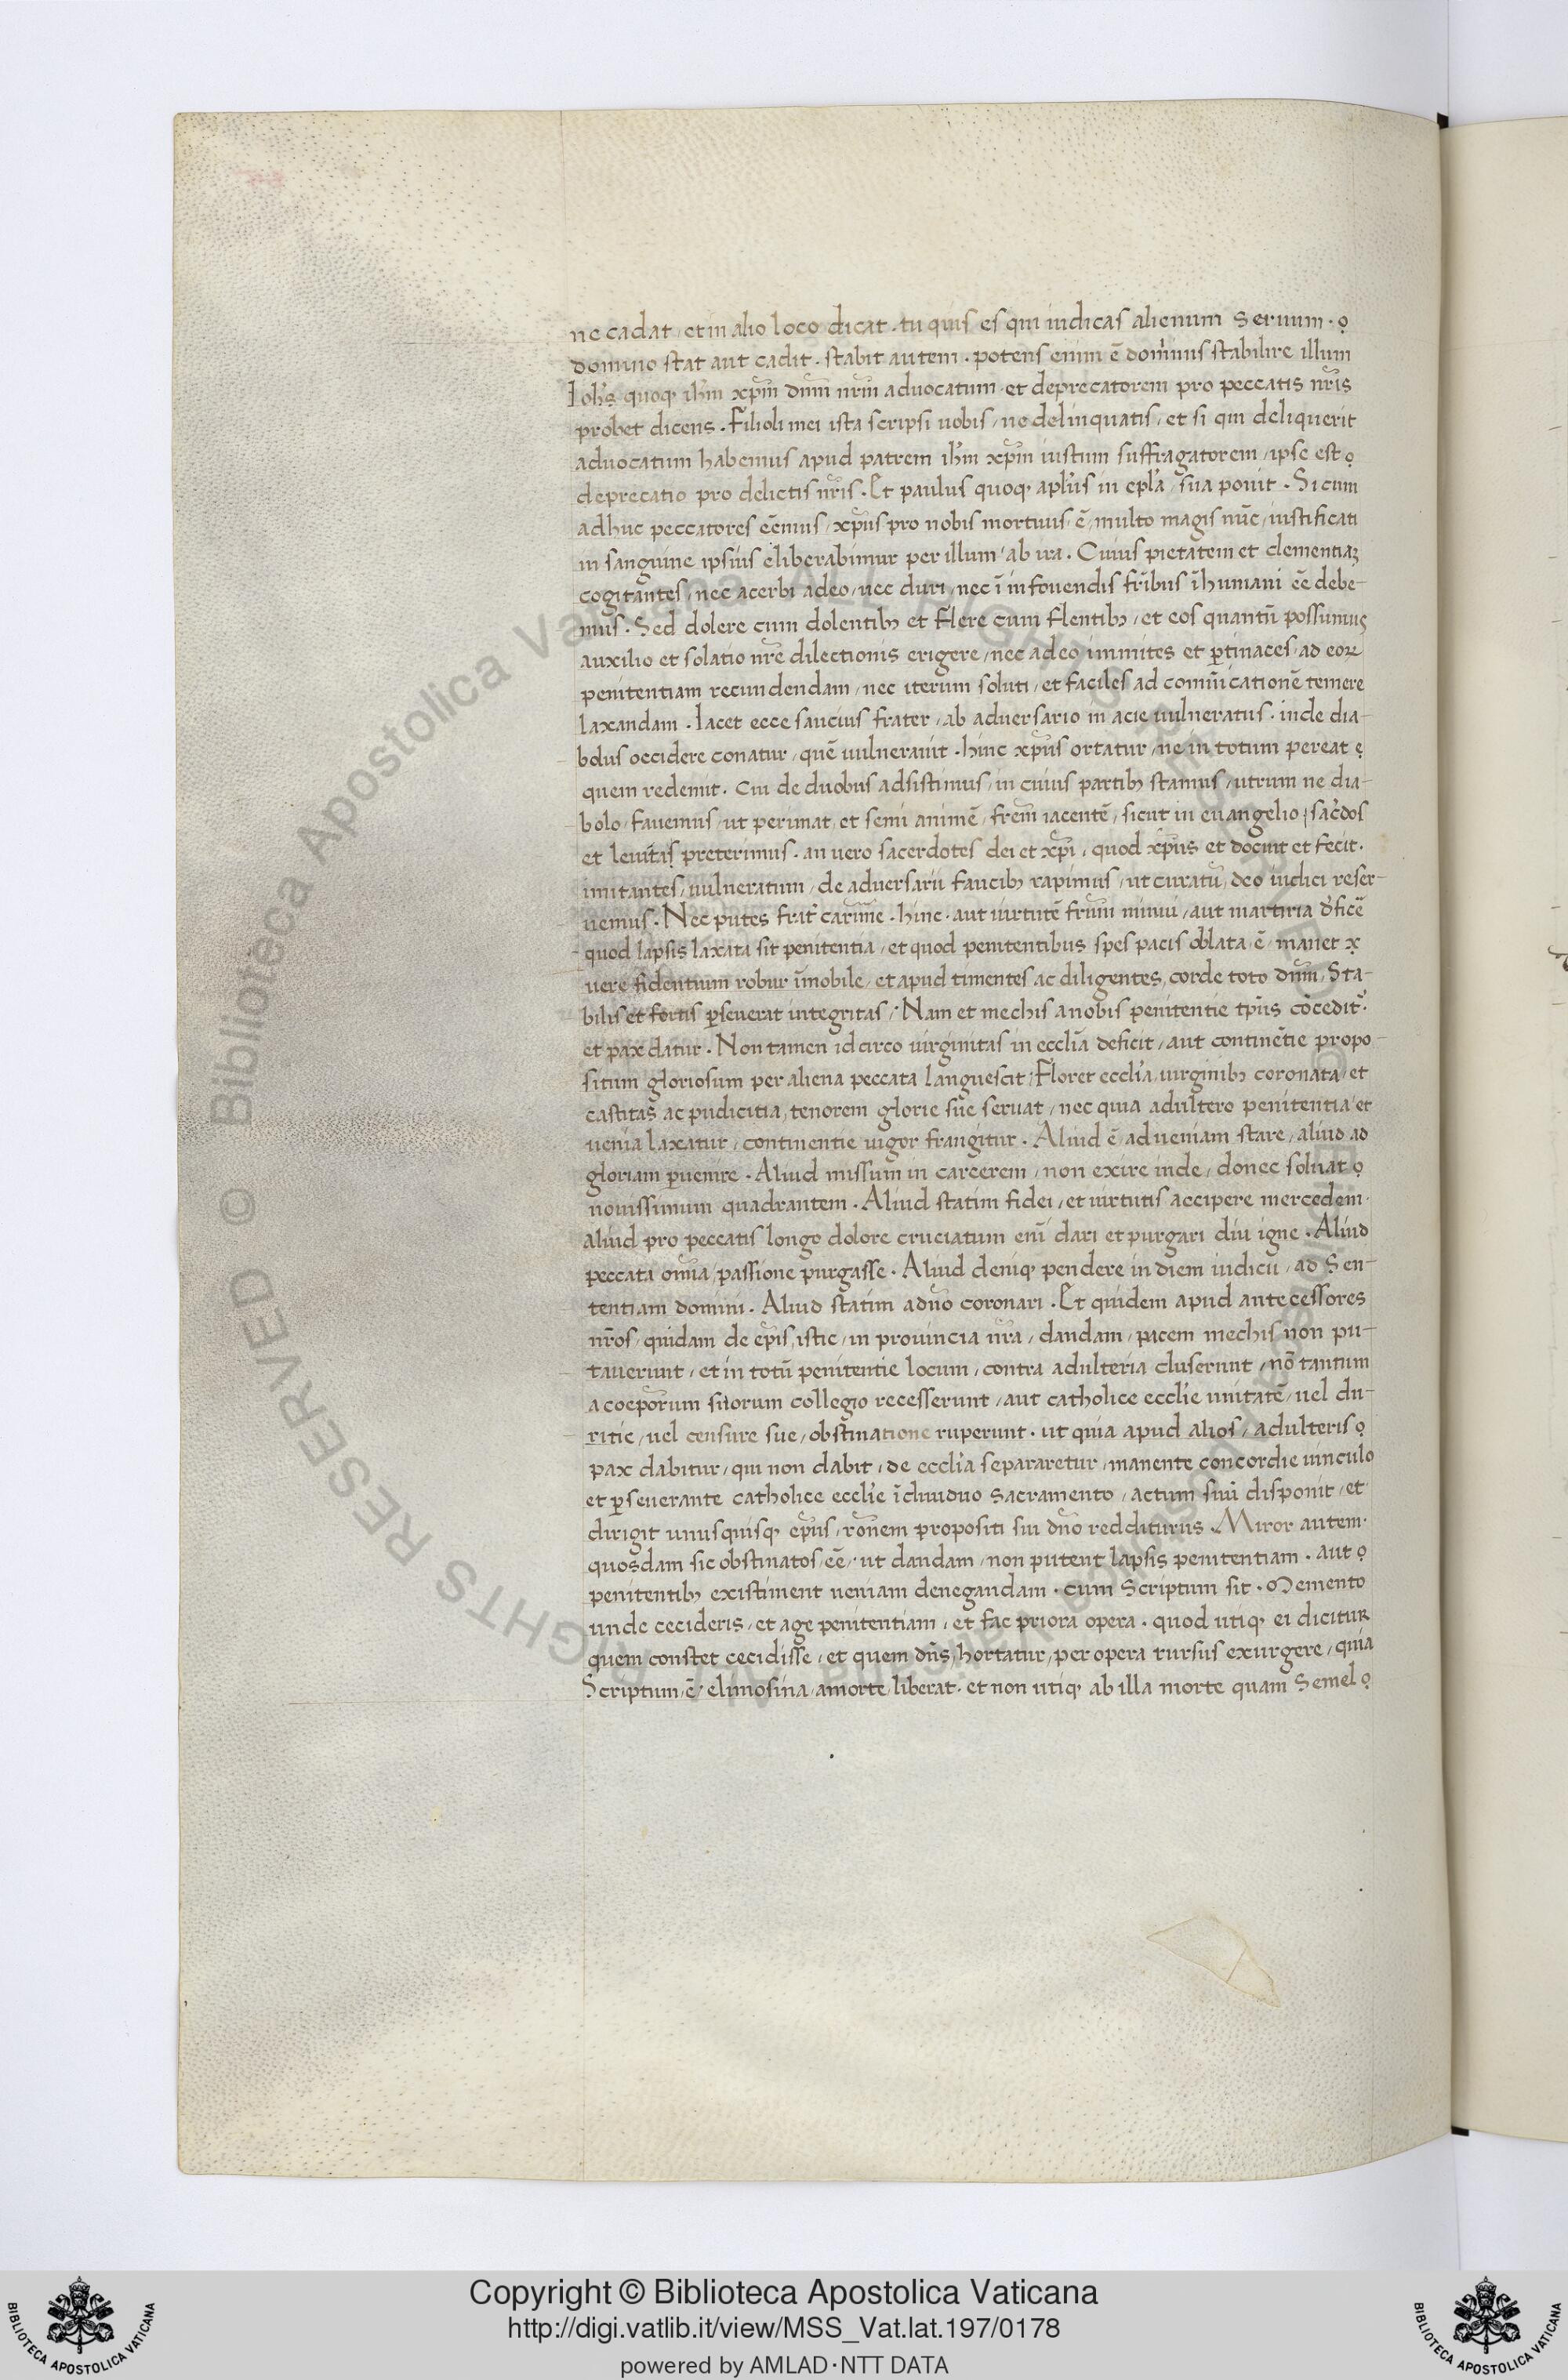 ne cadat / et in alio loco dicat . tu quis es qui iudicas alienum Seruum . o
domino stat aut cadit . stabit autem . potens enim ē dom̄inus stabilire illum
Ioh̄s quoqꝫ ih̄m xp̄m dn̄m nr̄m aduocatum et deprecatorem pro peccatis nr̄is
probet dicens . Filioli mei ista scripsi uobis / ne delinquatis / et si qui deliquerit
aduocatum habemus apud patrem ih̄m xp̄m iustum suffragatorem / ipse est o
deprecatio pro delictis nr̄is . Et paulus quoqꝫ apl̄us in epl̄a sua ponit . Si cum
adhuc peccatores eēmus / xp̄us pro nobis mortuus ē / multo magis nūc / iustificati
in sanguine ipsius eliberabimur per illum ab ira . Cuius pietatem et clementiaꝫ
cogitantes / nec acerbi adeo / nec duri / nec ī in fouendis fr̄ibus īhumani eē debe-
mus . Sed dolere cum dolentibꝫ et flere cum flentibꝫ / et eos quantū possumus
auxilio et solatio nr̄e dilectionis erigere / nec adeo immites et ꝑtinaces / ad eoꝝ
penitentiam recundendam / nec iterum soluti / et faciles ad comūicationē temere
laxandam . Iacet ecce saucius frater / ab aduersario in acie uulneratus . inde dia-
bolus occidere conatur / quē uulnerauit . hinc xp̄us ortatur / ne in totum pereat
quem redemit . Cui de duobus adsistimus / in cuius partibꝫ stamus / utrum ne dia-
bolo / fauemus / ut perimat / et semi animē / fr̄em iacentē / sicut in euangelio / sac̄dos
et leuitas preterimus . an uero sacerdotes dei et xp̄i / quod xp̄us et docuit et fecit .
imitantes / uulneratum / de aduersarii faucibꝫ rapimus / ut curatū / deo iudici reser-
uemus . Nec putes frat̄ carim̄e . hinc . aut uirtutē fr̄um minui / aut martiria d̄ficē
quod lapsis laxata sit penitentia / et quod penitentibus spes pacis oblata ē / manet x
uere fidentium robur īmobile / et apud timentes ac diligentes / corde toto dn̄m / Sta-
bilis et fortis ꝑseuerat integritas / Nam et mechis a nobis penitentie tp̄us cōcedit̄ .
et pax datur . Non tamen idcirco uirginitas in eccl̄ia deficit / aut continētie propo-
situm gloriosum per aliena peccata languescit / Floret eccl̄ia uirginibꝫ coronata / et
castitas ac pudicitia / tenorem glorie sue seruat / nec quia adultero penitentia et
uenia laxatur / continentie uigor frangitur . Aliud ē ad ueniam stare / aliud ad
gloriam ꝑuenire . Aliud missum in carcerem / non exire inde / donec soluat o
nouissimum quadrantem . Aliud statim fidei / et uirtutis accipere mercedem .
aliud pro peccatis longo dolore cruciatum em̄dari et purgari diu igne . Aliud
peccata om̄ia / passione purgasse . Aliud deniqꝫ pendere in diem iudicii / ad Sen-
tentiam domini . Aliud statim a dn̄o coronari . Et quidem apud antecessores
nr̄os / quidam de ep̄is / istic / in prouincia nr̄a / dandam / pacem mechis non pu-
tauerunt / et in totū penitentie locum / contra adulteria cluserunt / nō tantum
a coep̄orum suorum collegio recesserunt / aut catholice eccl̄ie unitatē / uel du-
ritie / uel censure sue / obstinatione ruperunt . ut quia apud alios / adulteris o
pax dabitur / qui non dabit / de eccl̄ia separaretur / manente concordie uinculo
et ꝑseuerante catholice eccl̄ie īdiuiduo sacramento / actum suū disponit / et
dirigit unusquisqꝫ ep̄us / rōnem propositi sui dn̄o redditurus . Miror autem .
quosdam sic obstinatos eē / ut dandam / non putent lapsis penitentiam . aut o
penitentibꝫ existiment ueniam denegandam . cum Scriptum sit . Memento
unde cecideris / et age penitentiam / et fac priora opera . quod utiqꝫ ei dicitur
quem constet cecidisse / et quem dn̄s hortatur / per opera rursus exurgere / quia
Scriptum ē / elimosina / a morte / liberat . et non utiqꝫ ab illa morte quam Semel o
Biblioteca Apostolica Vaticana
ALL RIGHTS RESERVED ©
Copyright © Biblioteca Apostolica Vaticana
http://digi.vatlib.it/view/MSS_Vat.lat.197/0178
powered by AMLAD·NTT DATA
BIBLIOTECA APOSTOLICA VATICANA
BIBLIOTECA APOSTOLICA VATICANA